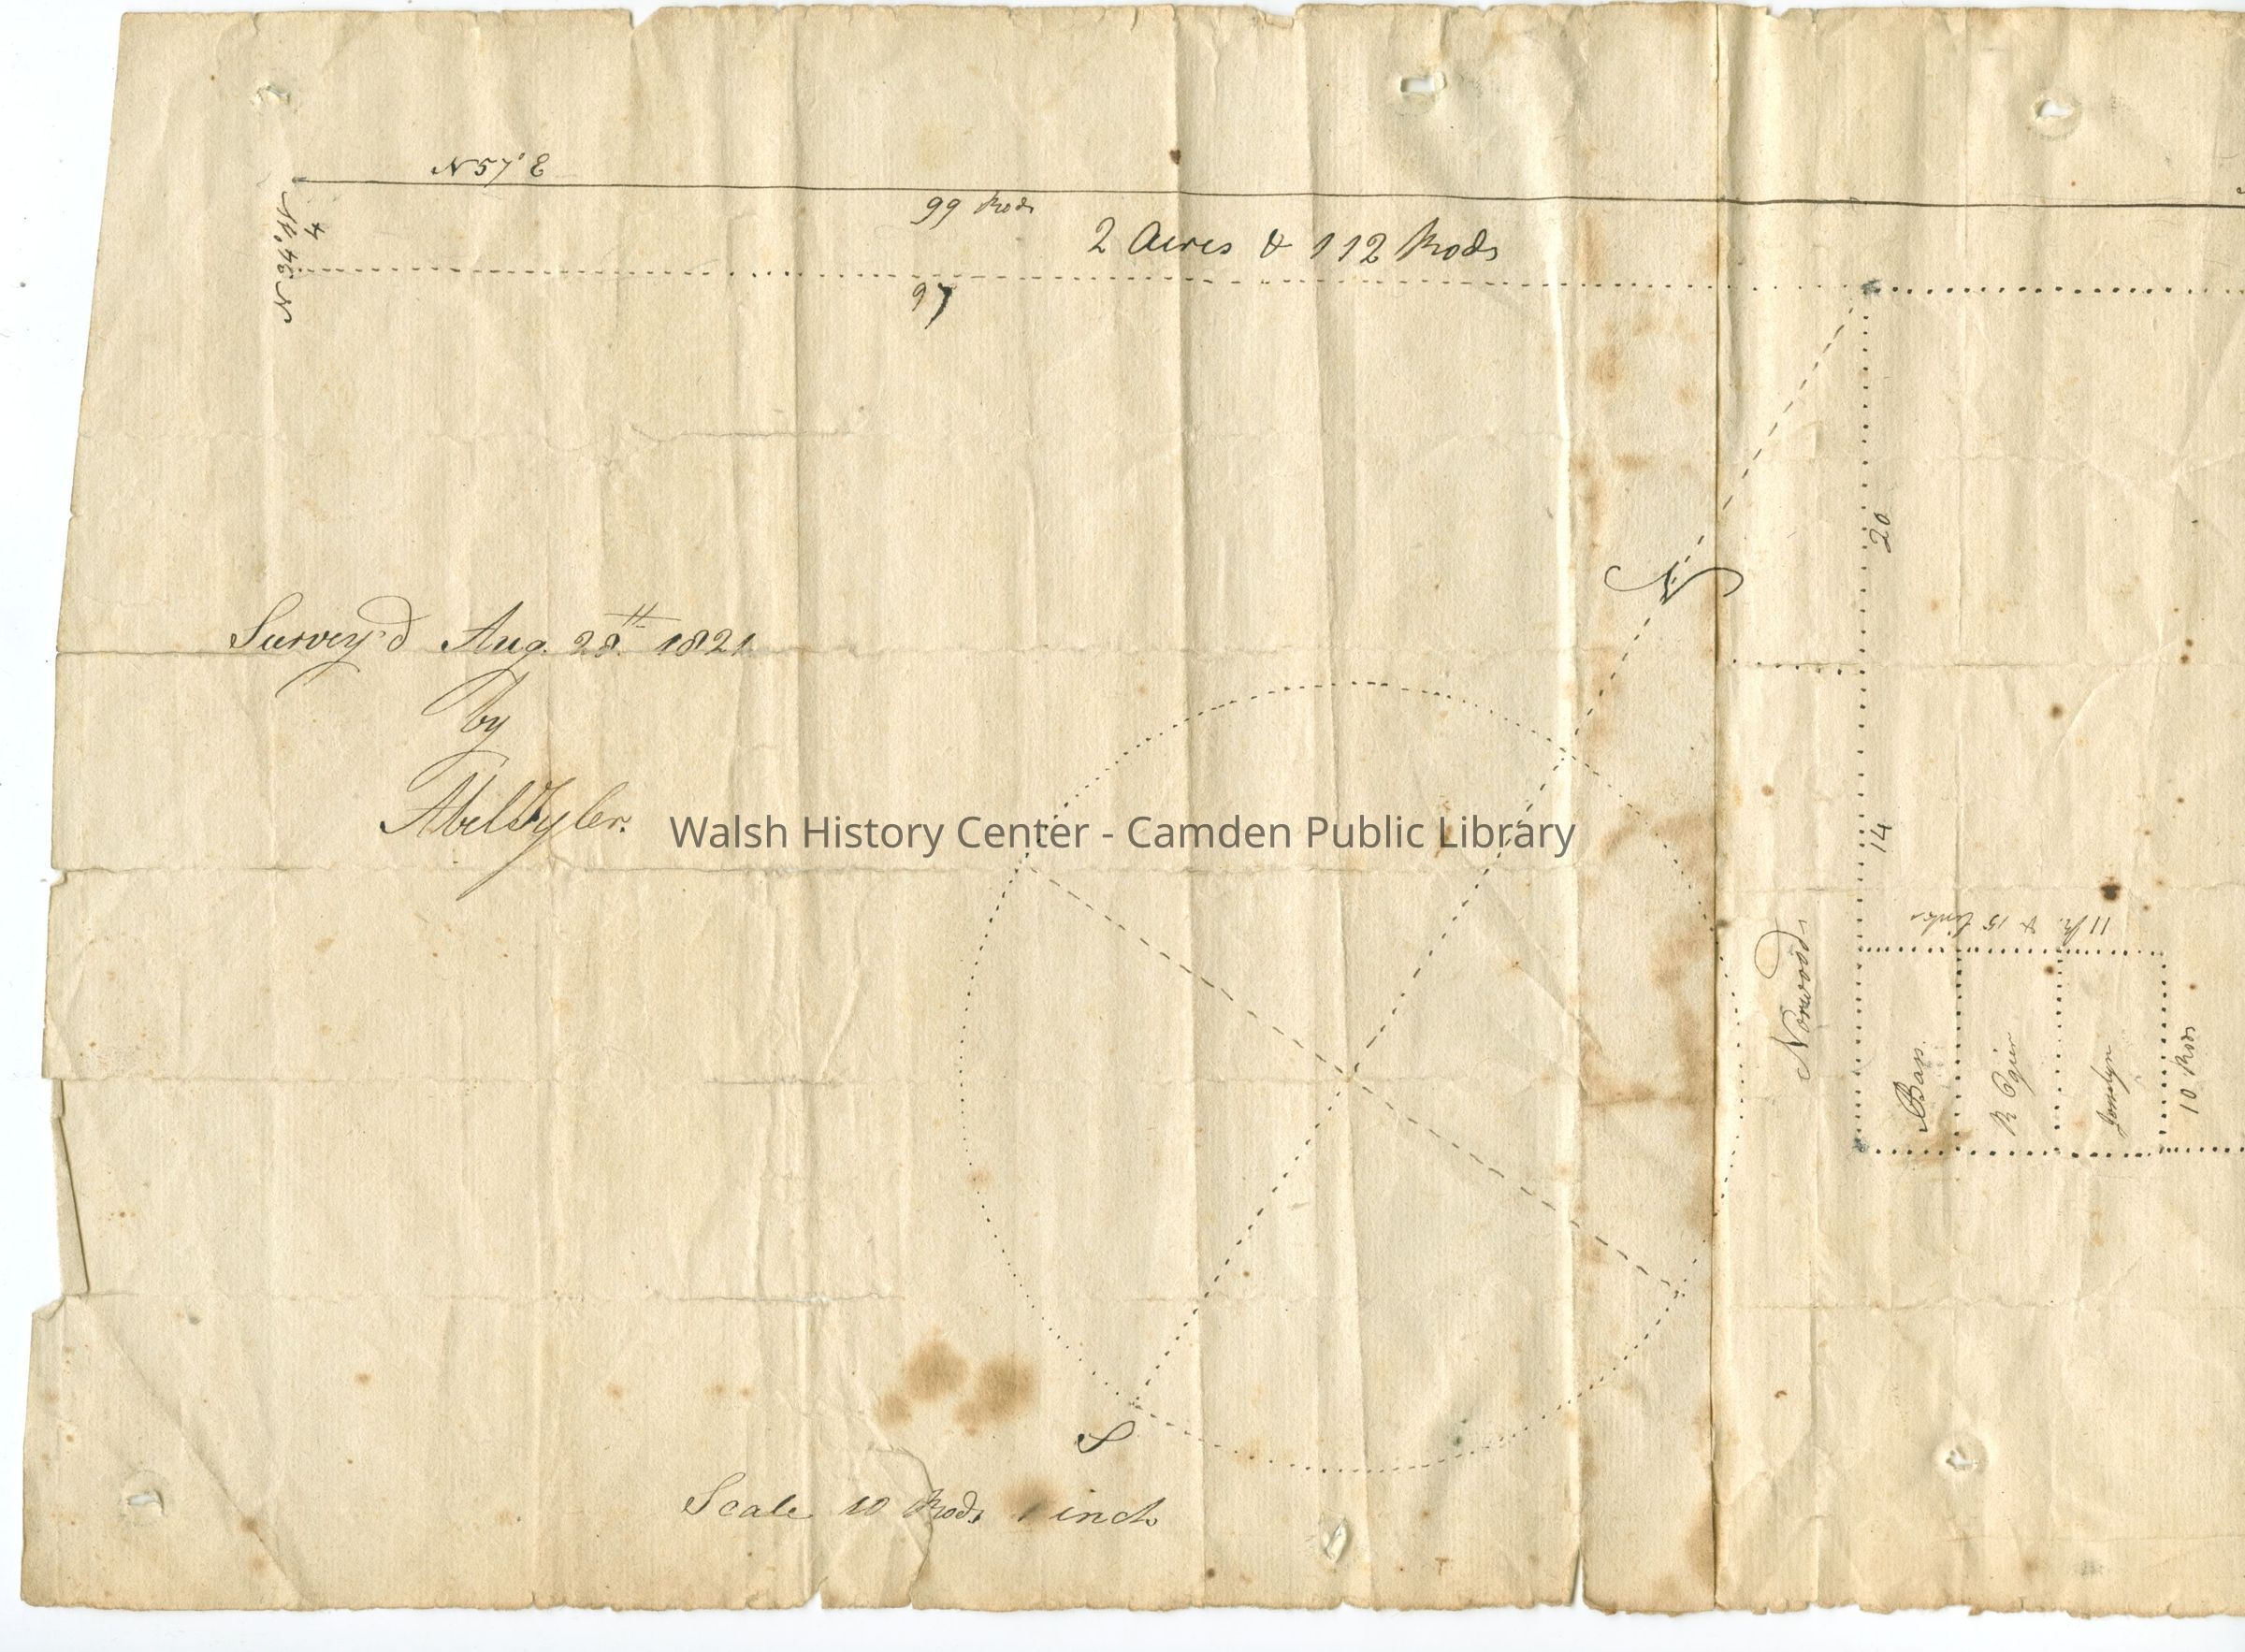 N 57° E
99 Rods
2 Acres & 112 Rods
4
97
20
Survey'd Aug. 28th 1821
by
Abel Tyler.
N
14
11 R. & 15 links
Norwood
Bass
R Ogier
Joselyn
10 Rods
S
Scale 10 Rods 1 inch
Walsh History Center - Camden Public Library